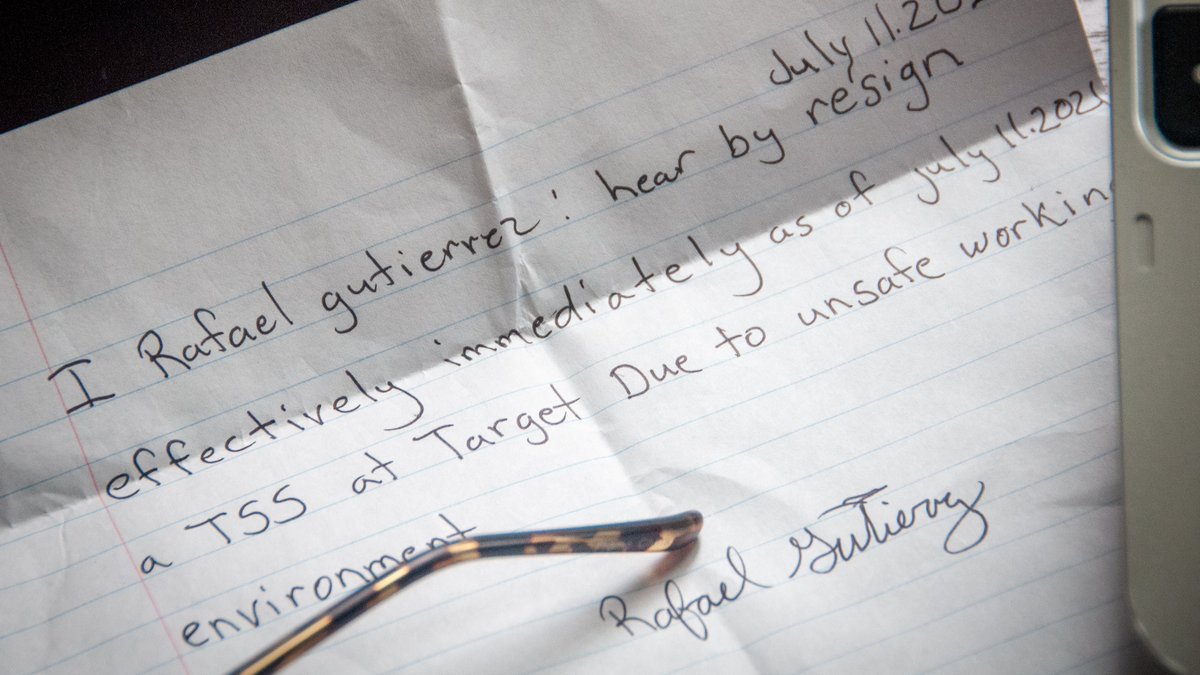 July 11.202
I Rafael gutierrez: hear by resign
effectively immediately as of july 11.2021
a TSS at Target Due to unsafe workin
environment
Rafael Gutierrez